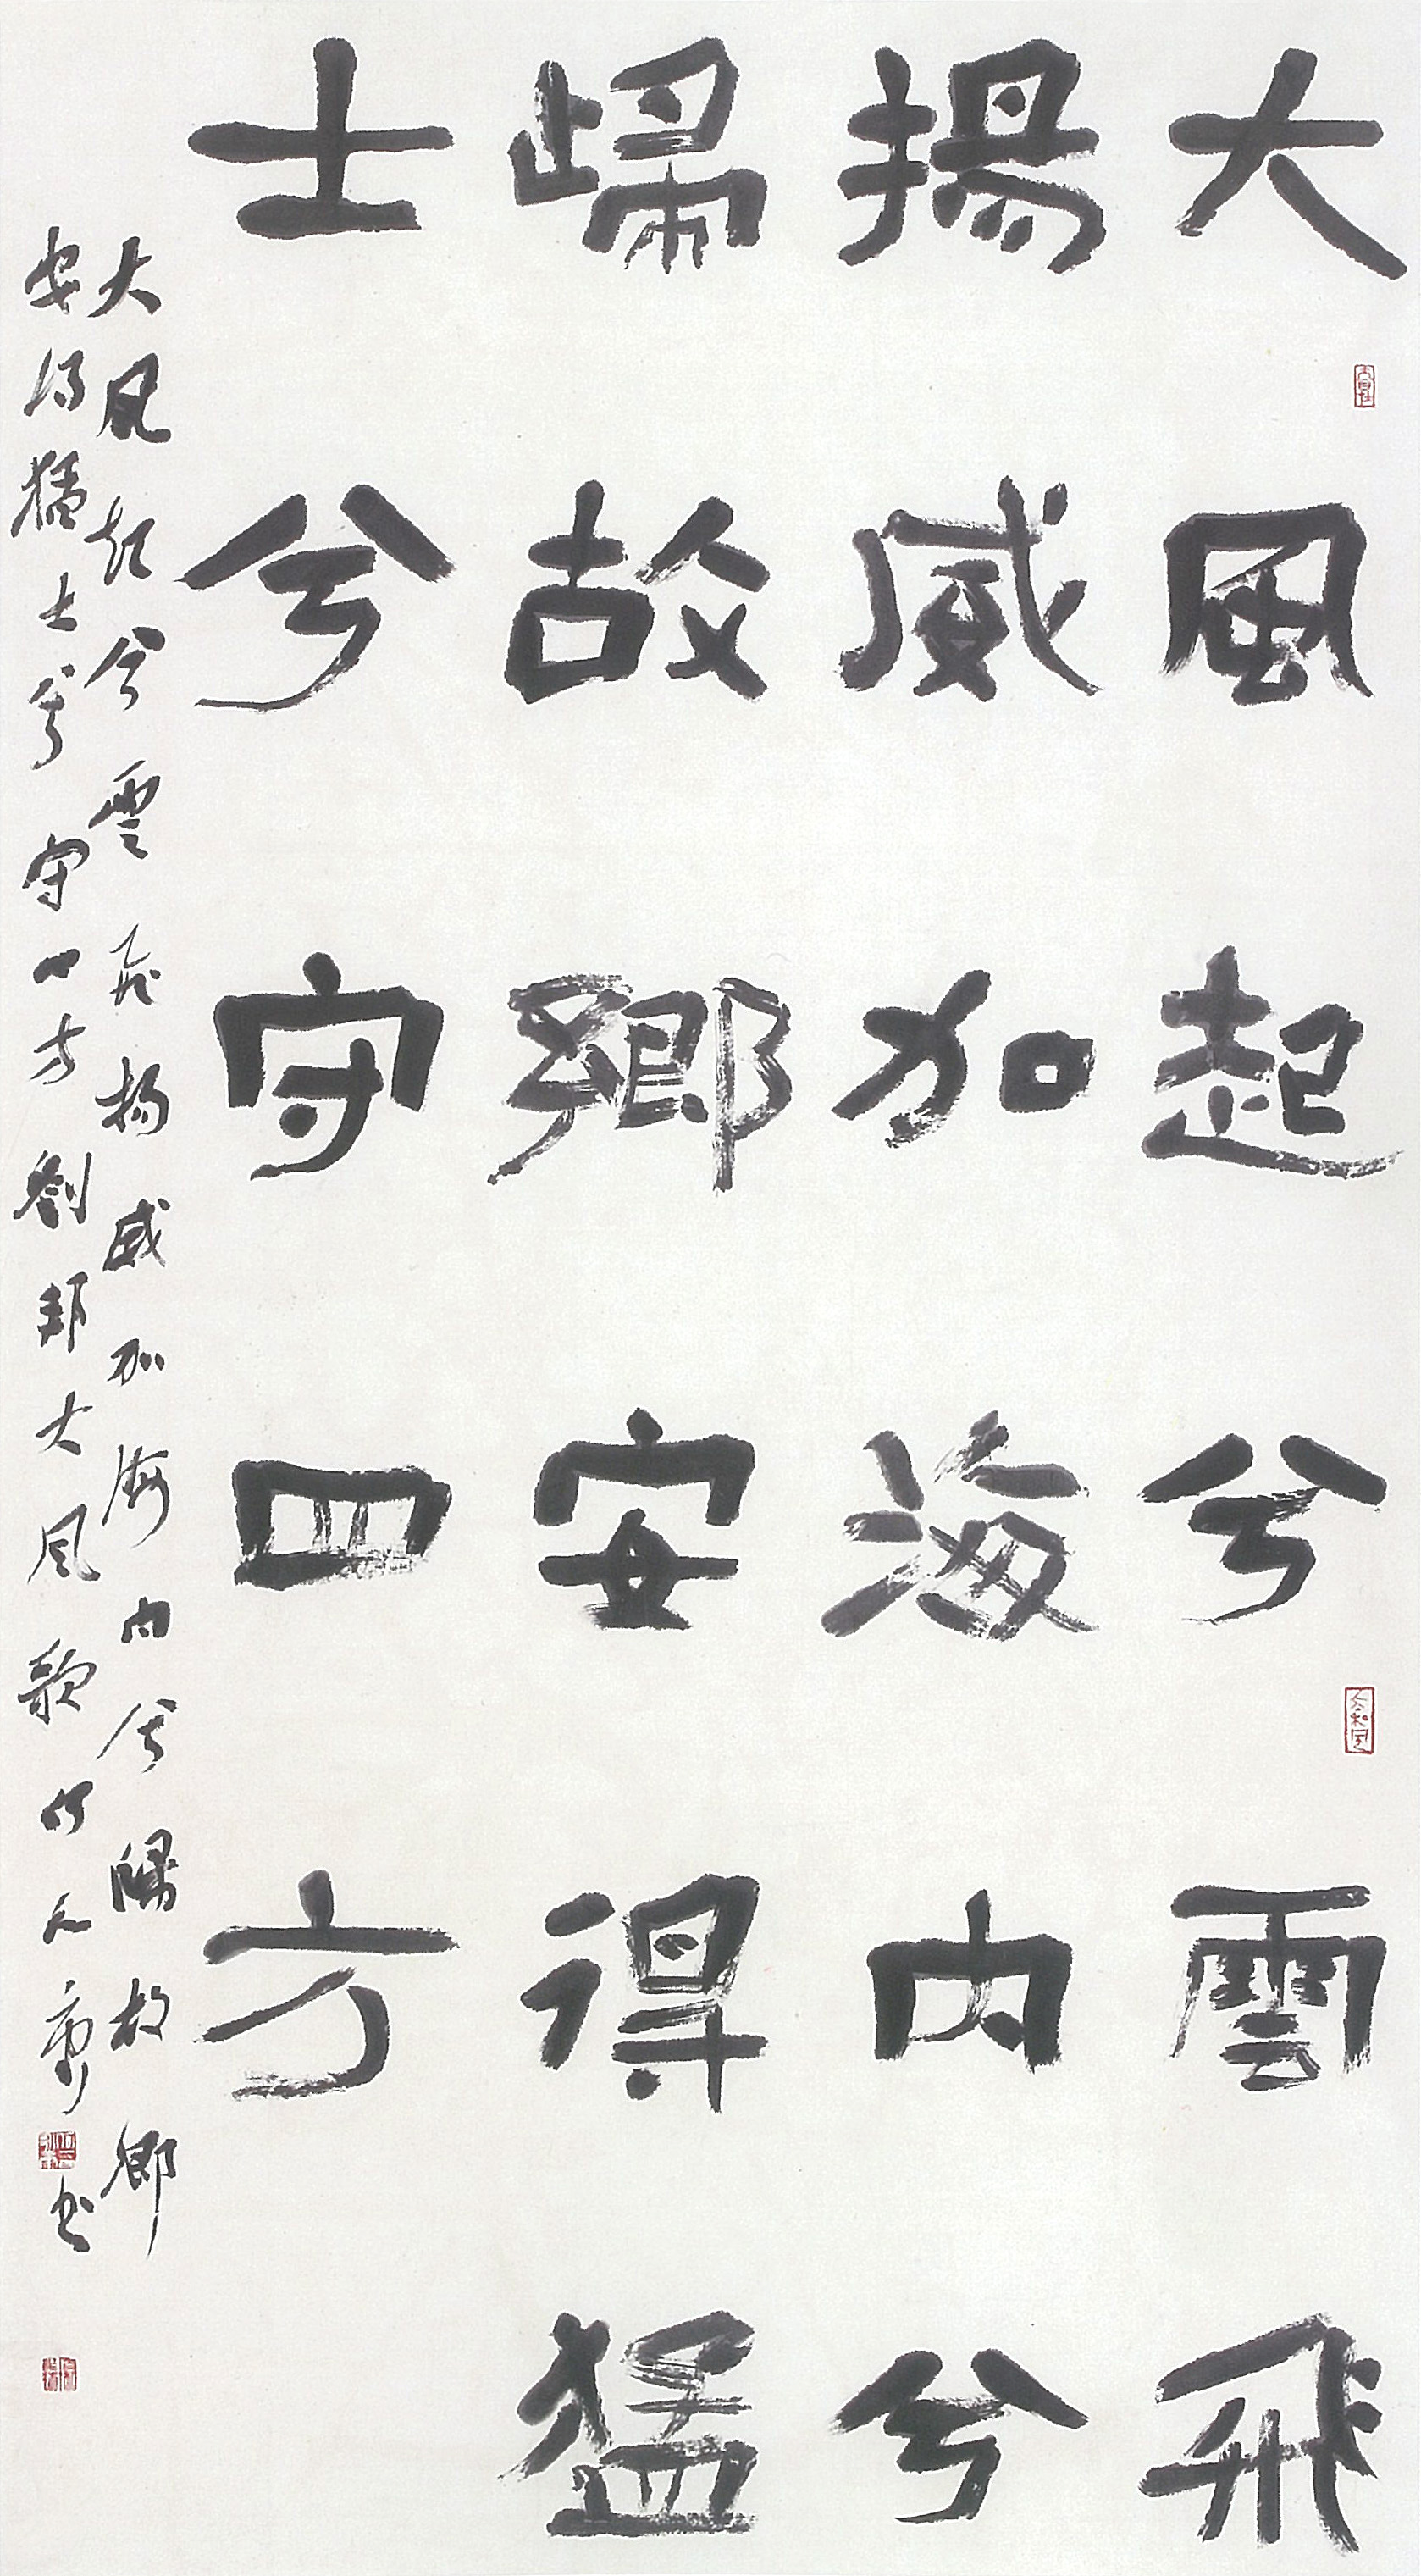 大風起兮雲飛
揚威加海内兮
歸故鄉安得猛
士兮守四方
大風起兮雲飛揚威加海内兮歸故鄉
安得猛士兮守四方劉邦大風歌